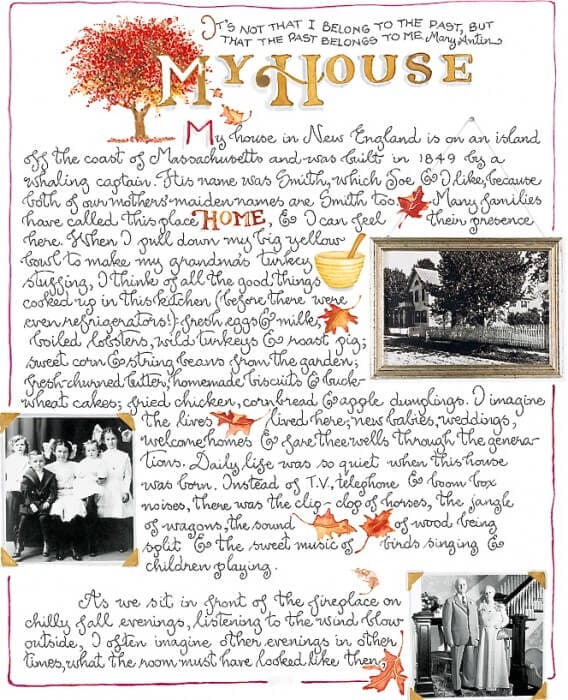 It's not that I belong to the past, but
that the past belongs to me. Mary Antin
My House
My house in New England is on an island
off the coast of Massachusetts and was built in 1849 by a
whaling captain. His name was Smith, which Joe & I like, because
both of our mothers' maiden names are Smith too. Many families
have called this place HOME, & I can feel their presence
here. When I pull down my big yellow
bowl to make my grandma's turkey
stuffing, I think of all the good things
cooked up in this kitchen (before there were
even refrigerators!): fresh eggs & milk,
boiled lobsters, wild turkeys & roast pig;
sweet corn & string beans from the garden;
fresh-churned butter, homemade biscuits & buck-
wheat cakes; fried chicken, cornbread & apple dumplings. I imagine
the lives lived here; new babies, weddings,
welcome homes & fare thee wells through the genera-
tions. Daily life was so quiet when this house
was born. Instead of T.V., telephone & boom box
noises, there was the clip-clop of horses, the jangle
of wagons, the sound of wood being
split & the sweet music of birds singing &
children playing.
As we sit in front of the fireplace on
chilly fall evenings, listening to the wind blow
outside, I often imagine other evenings in other
times, what the room must have looked like then,